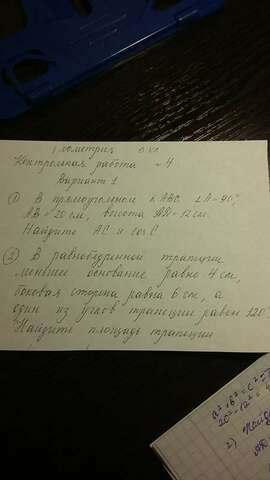 Геометрия 8 кл
Контрольная работа №4
Вариант 1
① В прямоугольном к АВС ∠А=90°,
АВ=20 см, высота АD=12 см.
Найдите АС и cos C
② В равнобедренной трапеции
меньшее основание равно 4 см,
боковая сторона равна 6 см, а
один из углов трапеции равен 120°
Найдите площадь трапеции
2)